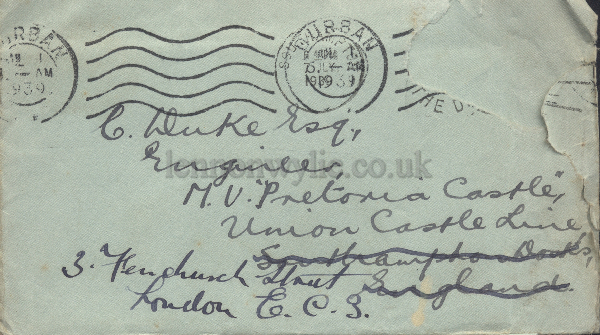 DURBAN
JUL 1
AM
1939
DURBAN
JLY
AM
1939
THE
C. Duke Esq,
Engineer,
lennonwylie.co.uk
M.V. "Pretoria Castle",
Union Castle Line,
Southampton Docks,
3. Fenchurch Street England.
London E.C.3.